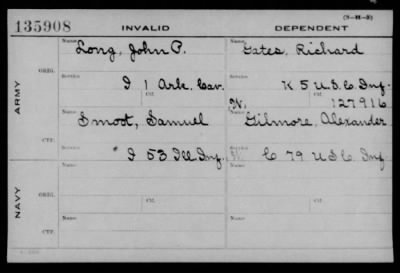 (3-H-3)
135908 INVALID DEPENDENT
Name Long, John P. Name Gates, Richard
ORIG.
Service I 1 Ark. Cav. Service K 5 U.S.C. Inf.
Ctf. Ctf. W. 127916
ARMY
Name Smoot, Samuel Name Gilmore, Alexander
CTF.
Service I 53 Ill. Inf. W. C 79 U.S.C. Inf.
Name Name
ORIG.
Ctf. Ctf.
NAVY
Name Name
CTF.